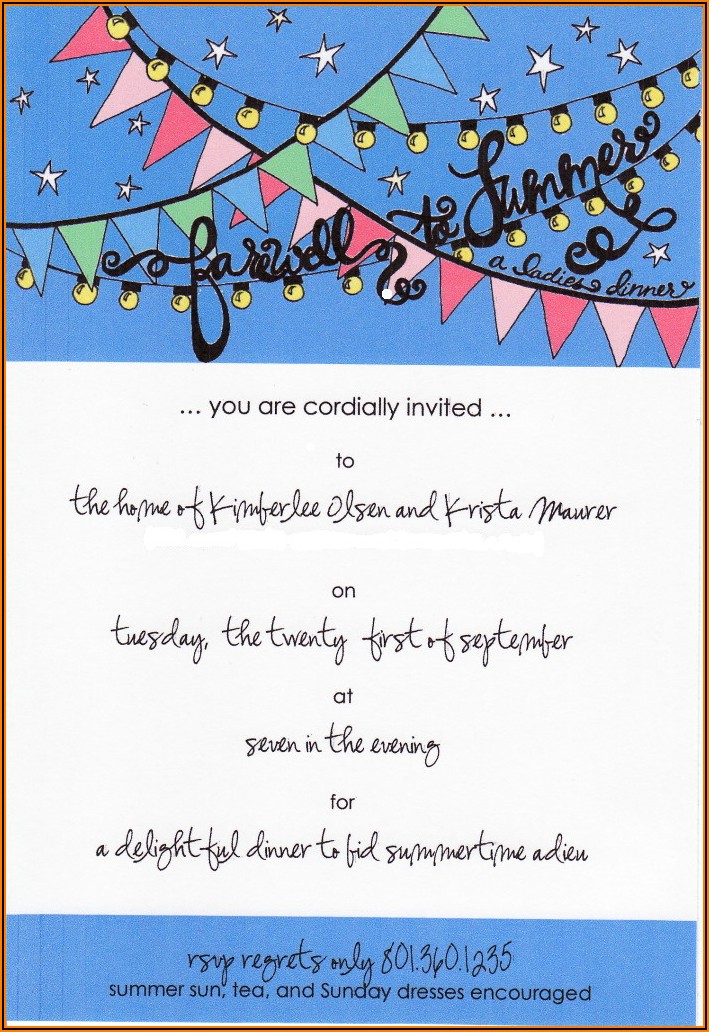 farewell to Summer
a ladies dinner
... you are cordially invited ...
to
the home of Kimberlee Olsen and Krista Maurer
on
tuesday, the twenty first of september
at
seven in the evening
for
a delightful dinner to bid summertime adieu
rsvp regrets only 801.360.1235
summer sun, tea, and Sunday dresses encouraged